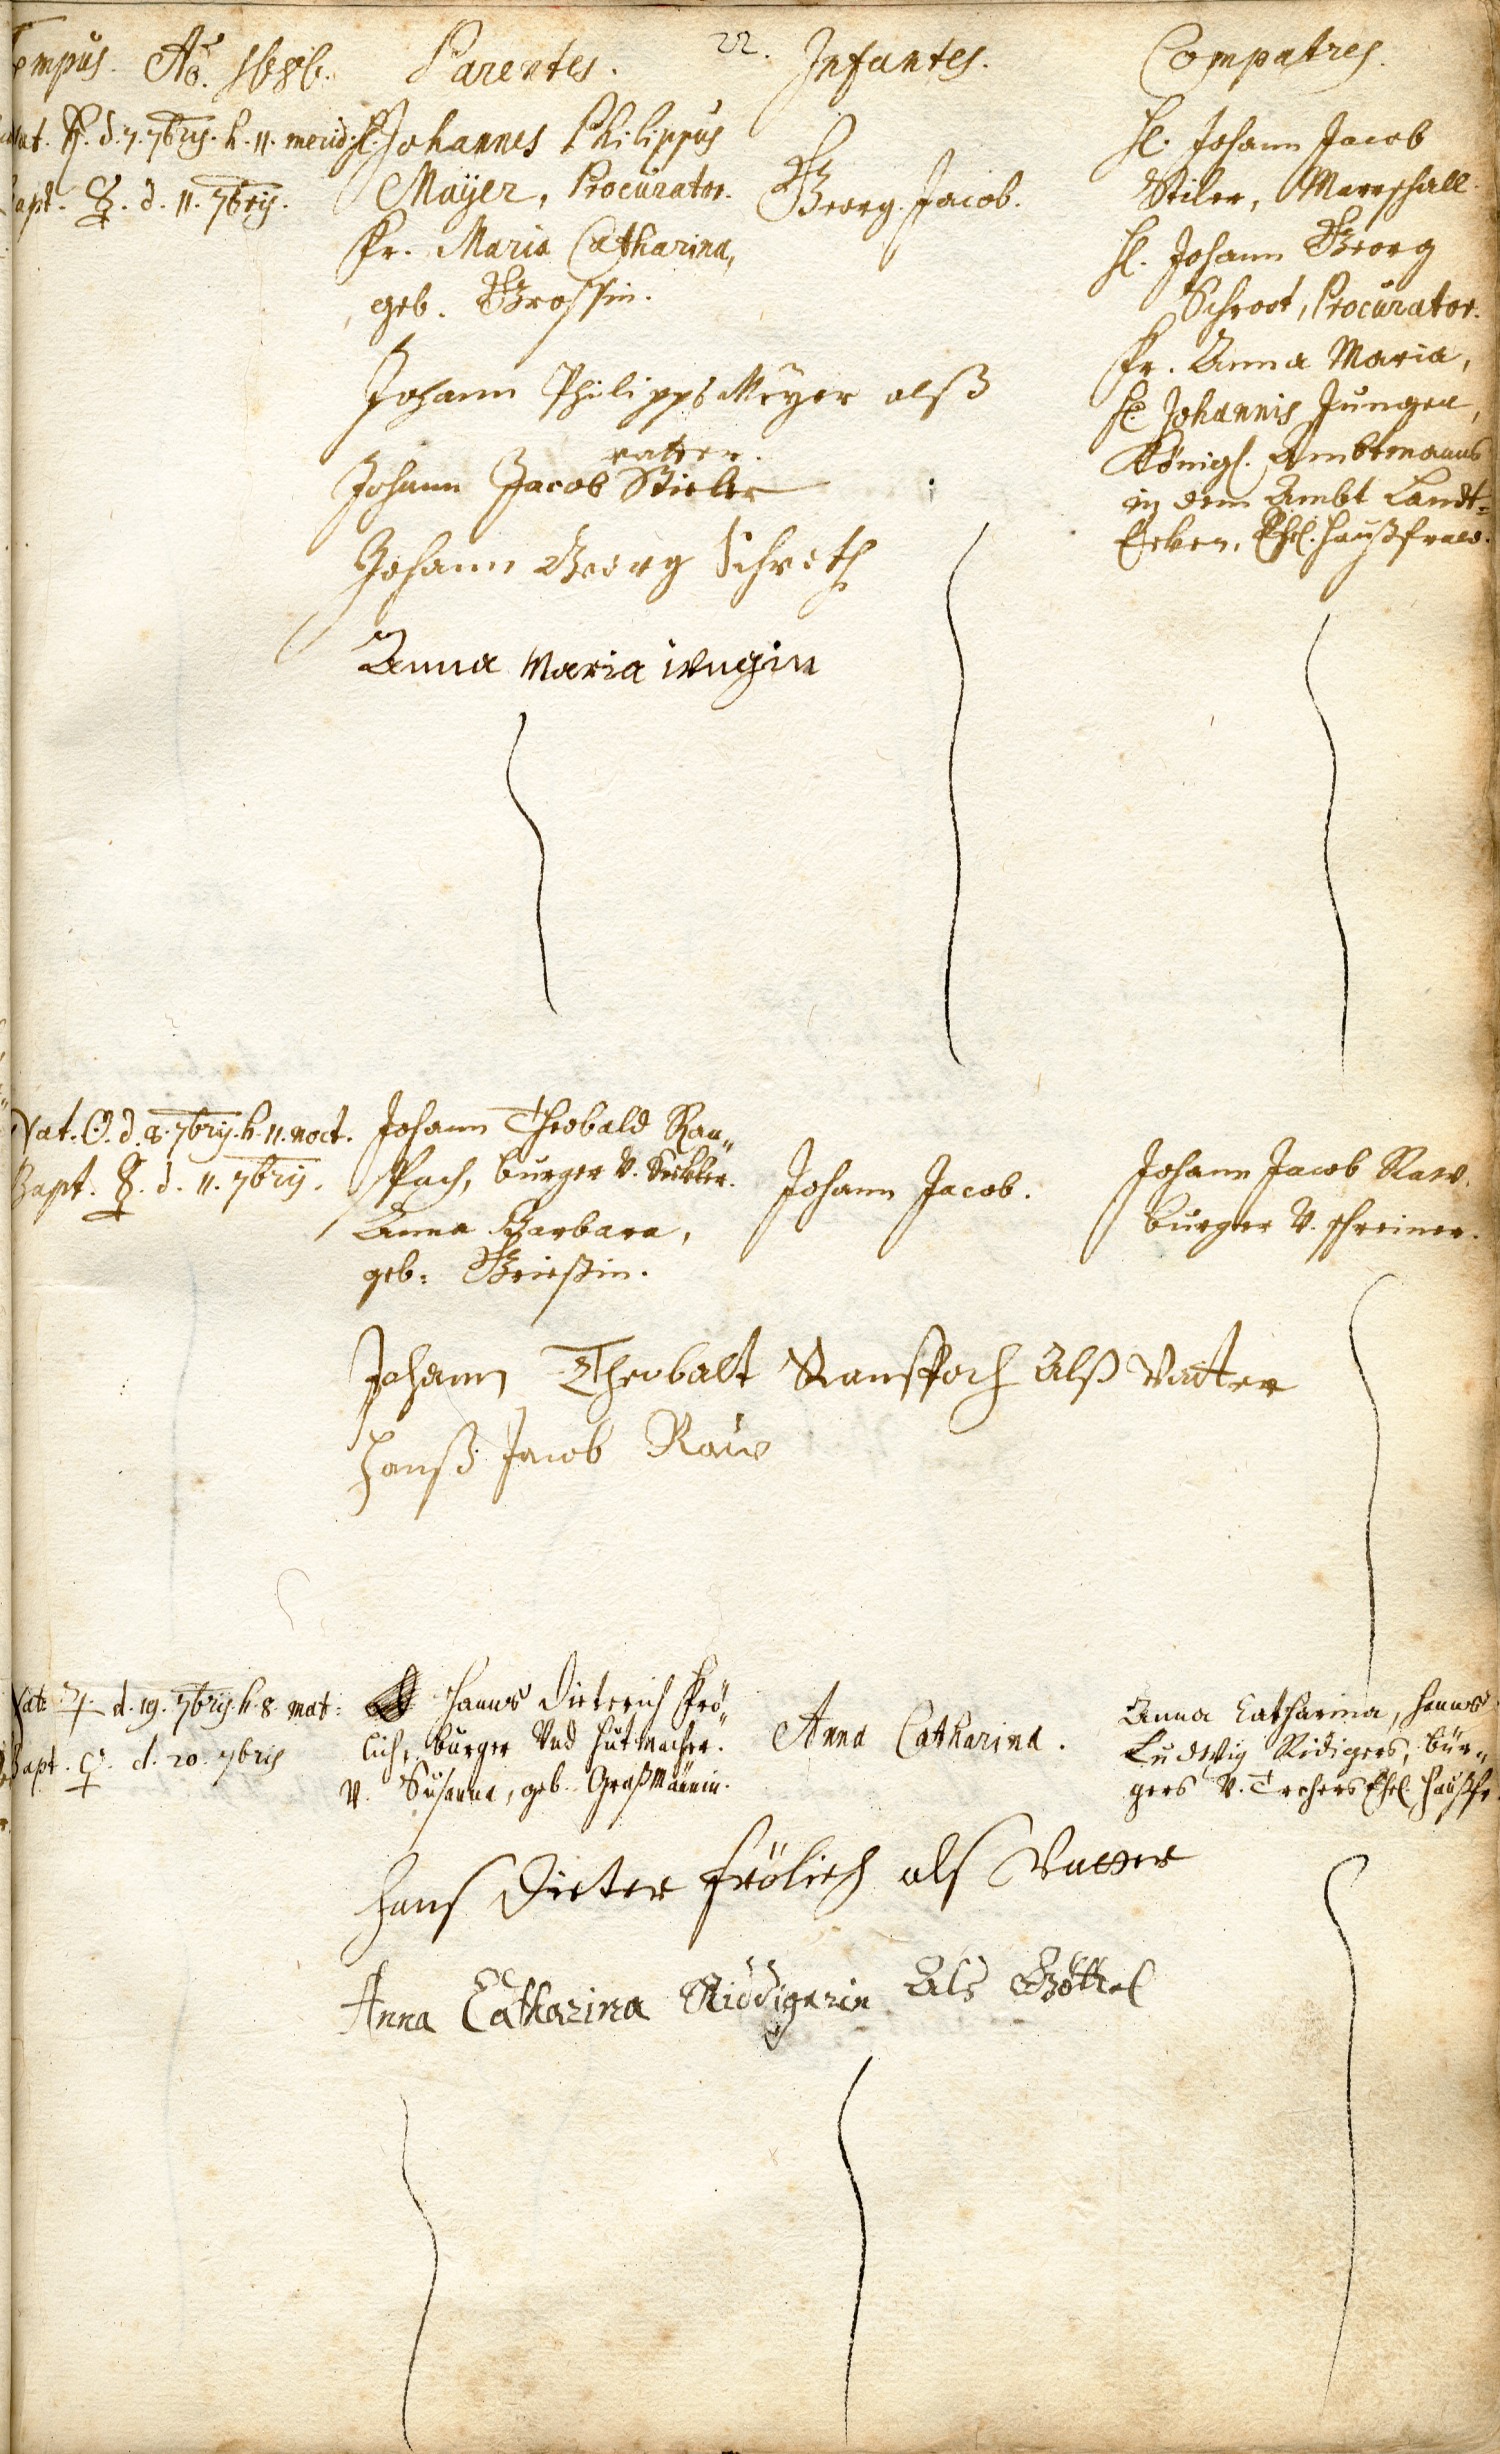 22.
Tempus. Aõ. 1686. Parentes. Infantes. Compatres.
Nat. ♄. d. 7. 7bris. h. 11. merid.
Bapt. ☿. d. 11. 7bris.
H. Johannes Philippus
Mayer, Procurator.
Fr. Maria Catharina,
geb. Grossin.
Georg Jacob.
H. Johann Jacob
Stiler, Marschall.
H. Johann Georg
Schroot, Procurator.
Fr. Anna Maria,
H. Johannis Jungen,
Königl. Ambtmanns
in dem Ambt Landt=
Ecken, Ehel. Haußfraw.
Johann Philipps Meyer alß
vatter.
Johann Jacob Stieler
Johann Georg Schroth
Anna Maria iungin
Nat. ☉. d. 8. 7bris. h. 11. noct.
Bapt. ☿. d. 11. 7bris.
Johann Theobald Ran„
spach, burger v. Seckler.
Anna Barbara,
geb: Griessin.
Johann Jacob.
Johann Jacob Raw.
burger v. schreiner.
Johann Theobalt Ranspach Alß Vatter
Hanß Jacob Rauw
Nat. ♃. d. 19. 7bris. h. 8. mat:
Bapt. ♀. d. 20. 7bris
Hanns Dieterich Frö„
lich, burger Und hutmacher.
V. Susanna, geb. Graßmännin.
Anna Catharina.
Anna Catharina, Hanns
Ludwig Ridigers, bur„
gers v. Trehers Ehel. Haußfr.
Hans Dieter Frölich als Vatter
Anna Catharina Riddigerin Als Göttel